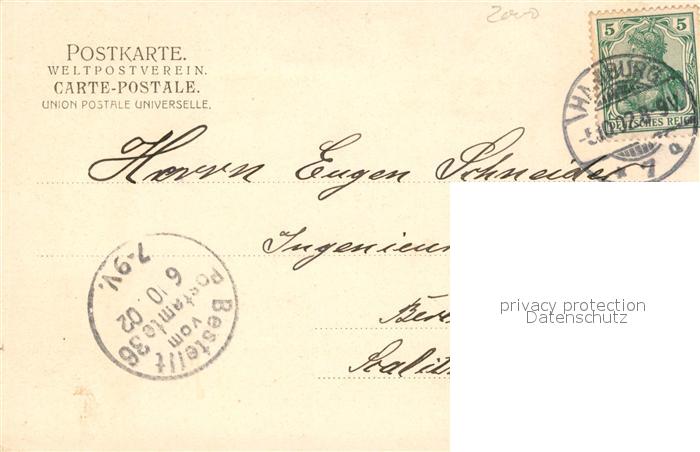 2000
POSTKARTE.
WELTPOSTVEREIN.
CARTE-POSTALE.
UNION POSTALE UNIVERSELLE.
5 5
DEUTSCHES REICH
HAMBURG
-5.10.02. 8-9V.
* 1 a
Herrn Eugen Schneider
Ingenieur
privacy protection
Datenschutz
Bestellt
vom
Postamte 36
6 10 02
7-9V.